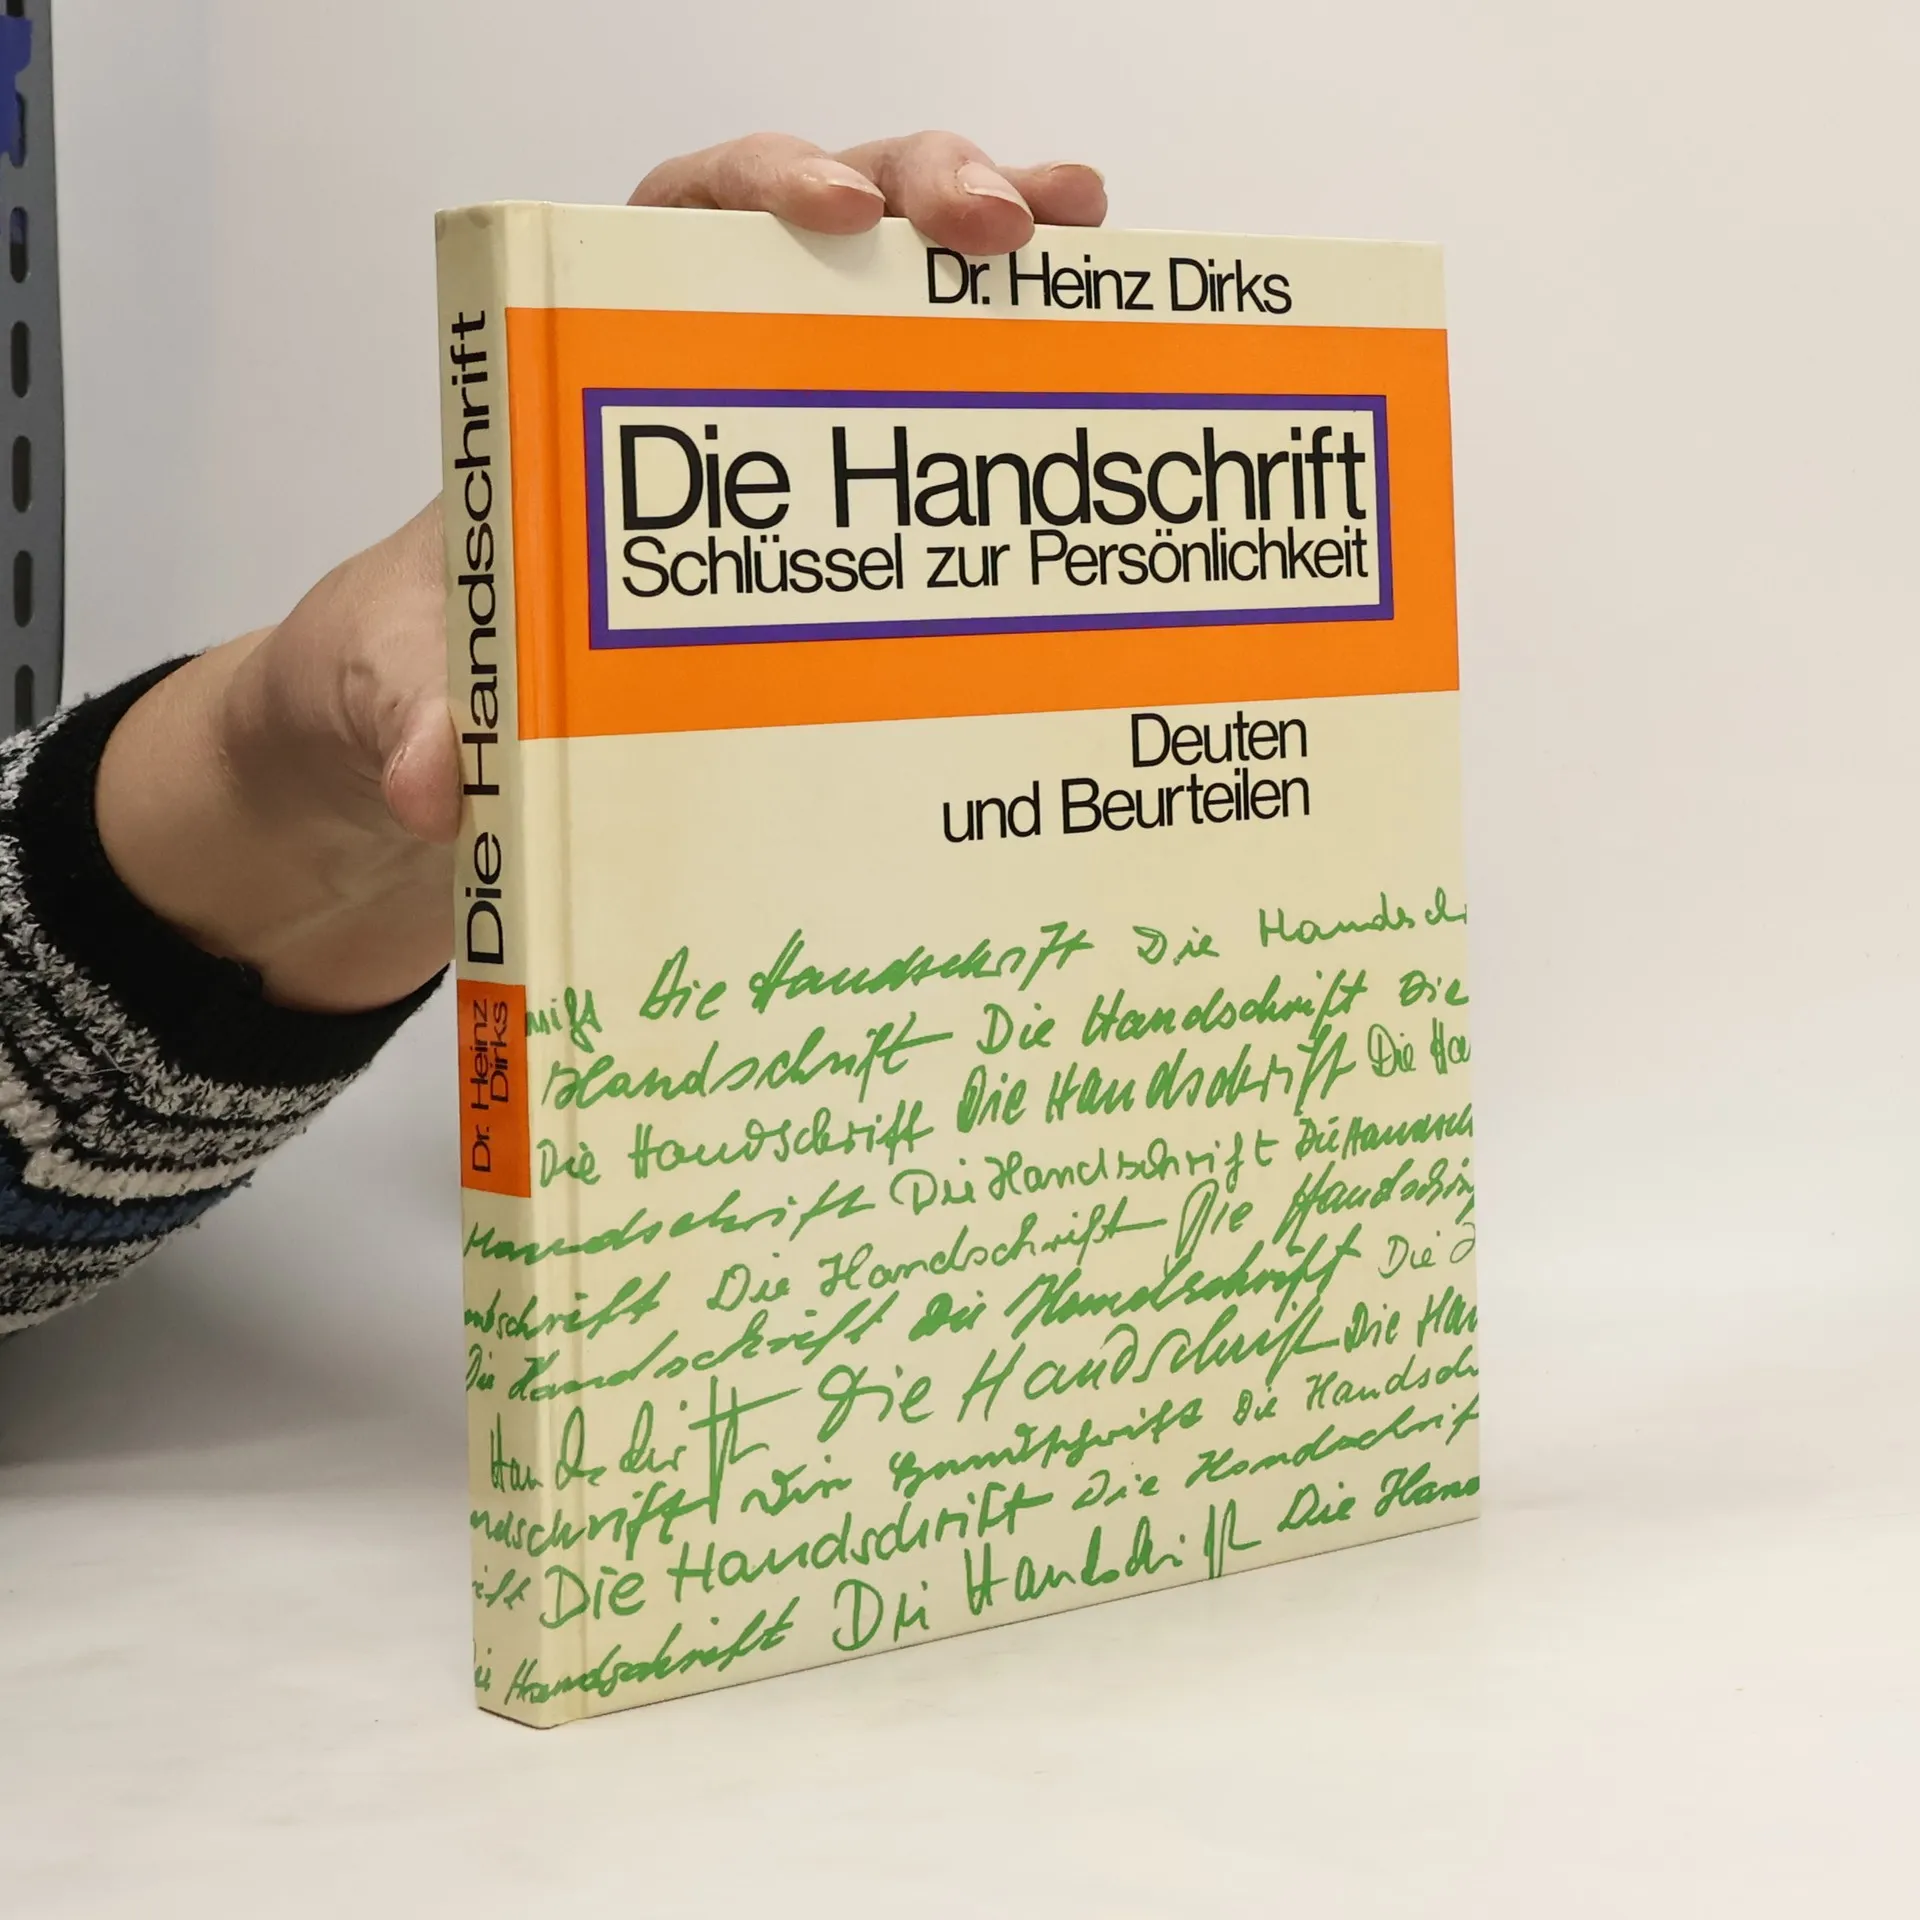 Dr. Heinz Dirks
Die Handschrift
Schlüssel zur Persönlichkeit
Deuten
und Beurteilen
Die Handschrift
Dr. Heinz
Dirks
Die Handschrift Die Handsch
Handschrift Die Handschrift Die
Die Handschrift Die Handschrift Die Ha
Handschrift Die Handschrift Die Handsch
schrift Die Handschrift Die Handschri
Die Handschrift Die Handschrift Die
Handschrift Die Handschrift Die Han
ndschrift Die Handschrift Die Handsch
ift Die Handschrift Die Handschrift
Die Handschrift Die Handschrift Die Hand